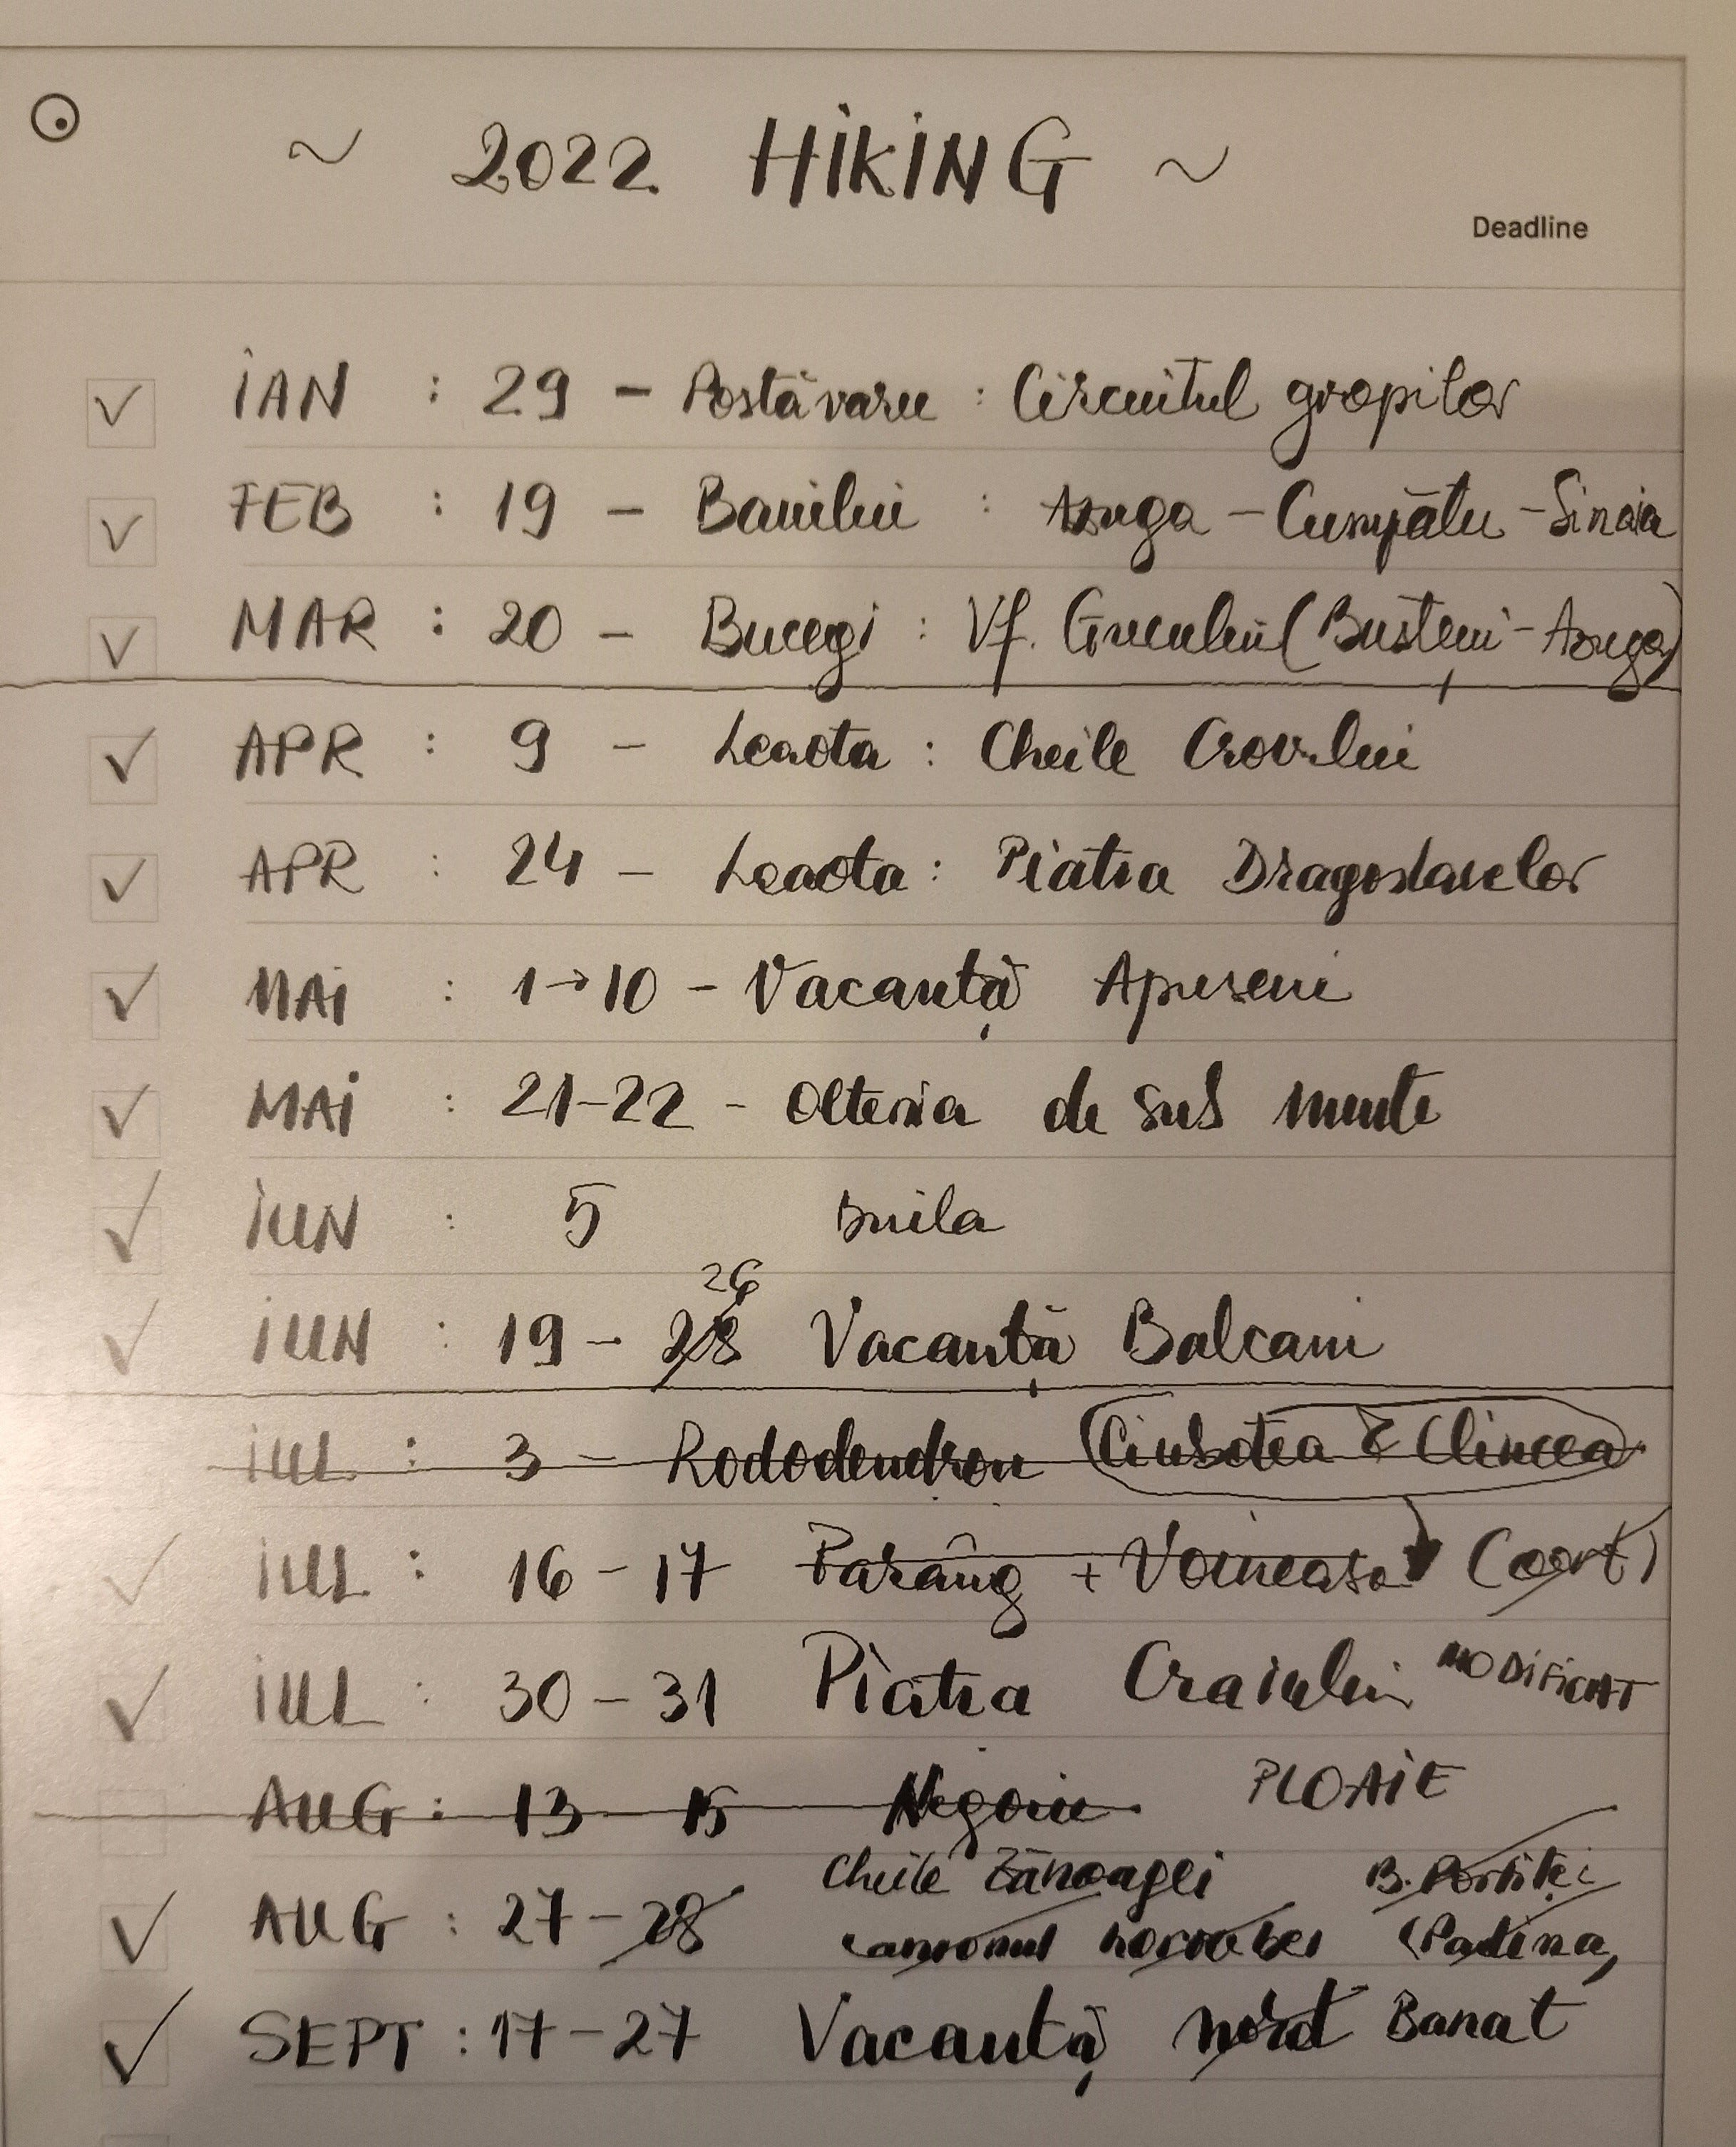 ~ 2022 HIKING ~
Deadline
IAN : 29 - Postăvaru : Circuitul gropilor
FEB : 19 - Baiului : Azuga - Cumpătu - Sinaia
MAR : 20 - Bucegi : Vf. Grecului (Bușteni - Azuga)
APR : 9 - Leaota : Cheile Crovului
APR : 24 - Leaota : Piatra Dragoslavelor
MAI : 1→10 - Vacanță Apuseni
MAI : 21-22 - Oltenia de sub munte
IUN : 5 Buila
26
IUN : 19 - 28 Vacanță Balcani
IUL : 3 - Rododendron Ciubotea & Clincea
IUL : 16 - 17 Parâng + Voineasa (cort)
IUL : 30 - 31 Piatra Craiului MODIFICAT
AUG : 13 - 15 Negoiu PLOAIE
Cheile Zănoagei B. Portiței
AUG : 27 - 28 canionul horoabei (Padina)
SEPT : 17 - 27 Vacanță nord Banat